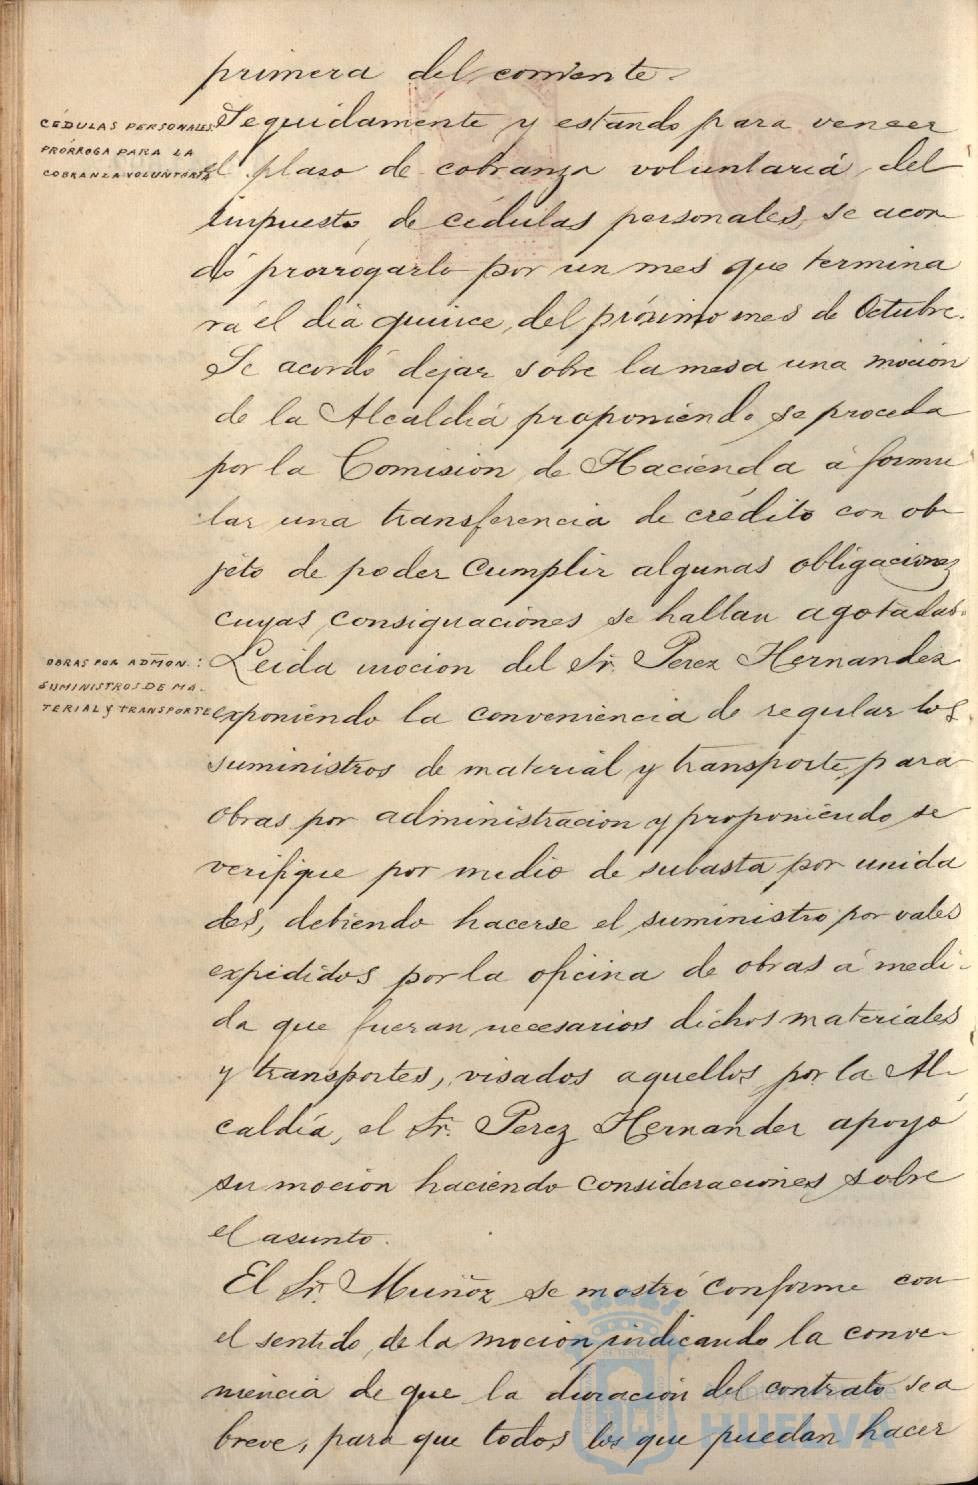 primera del corriente.
CÉDULAS PERSONALES
PRORROGA PARA LA
COBRANZA VOLUNTARIA
Seguidamente y estando para vencer
el plaso de cobranza voluntaria del
impuesto de cédulas personales, se acor
dó prorrogarlo por un mes que termina
rá el dia quince, del próximo mes de Octubre.
Se acordó dejar sobre la mesa una moción
de la Alcaldia proponiendo se proceda
por la Comision de Hacienda á formu
lar una transferencia de crédito con ob-
jeto de poder cumplir algunas obligaciones
cuyas consignaciones se hallan agotadas.
OBRAS POR ADMON.:
SUMINISTROS DE MA-
TERIAL y TRANSPORTE
Leida mocion del Sr. Perez Hernandez
exponiendo la conveniencia de regular los
suministros de material y transporte para
obras por administracion y proponiendo se
verifique por medio de subasta por unida
des, debiendo hacerse el suministro por vales
expedidos por la oficina de obras á medi-
da que fueran necesarios dichos materiales
y transportes, visados aquellos por la Al-
caldía, el Sr. Perez Hernandez apoyó
su mocion haciendo consideraciones sobre
el asunto.
El Sr. Muñoz se mostró conforme con
el sentido de la moción indicando la conve-
niencia de que la duración del contrato sea
breve, para que todos los que puedan hacer
Ayuntamiento de
HUELVA